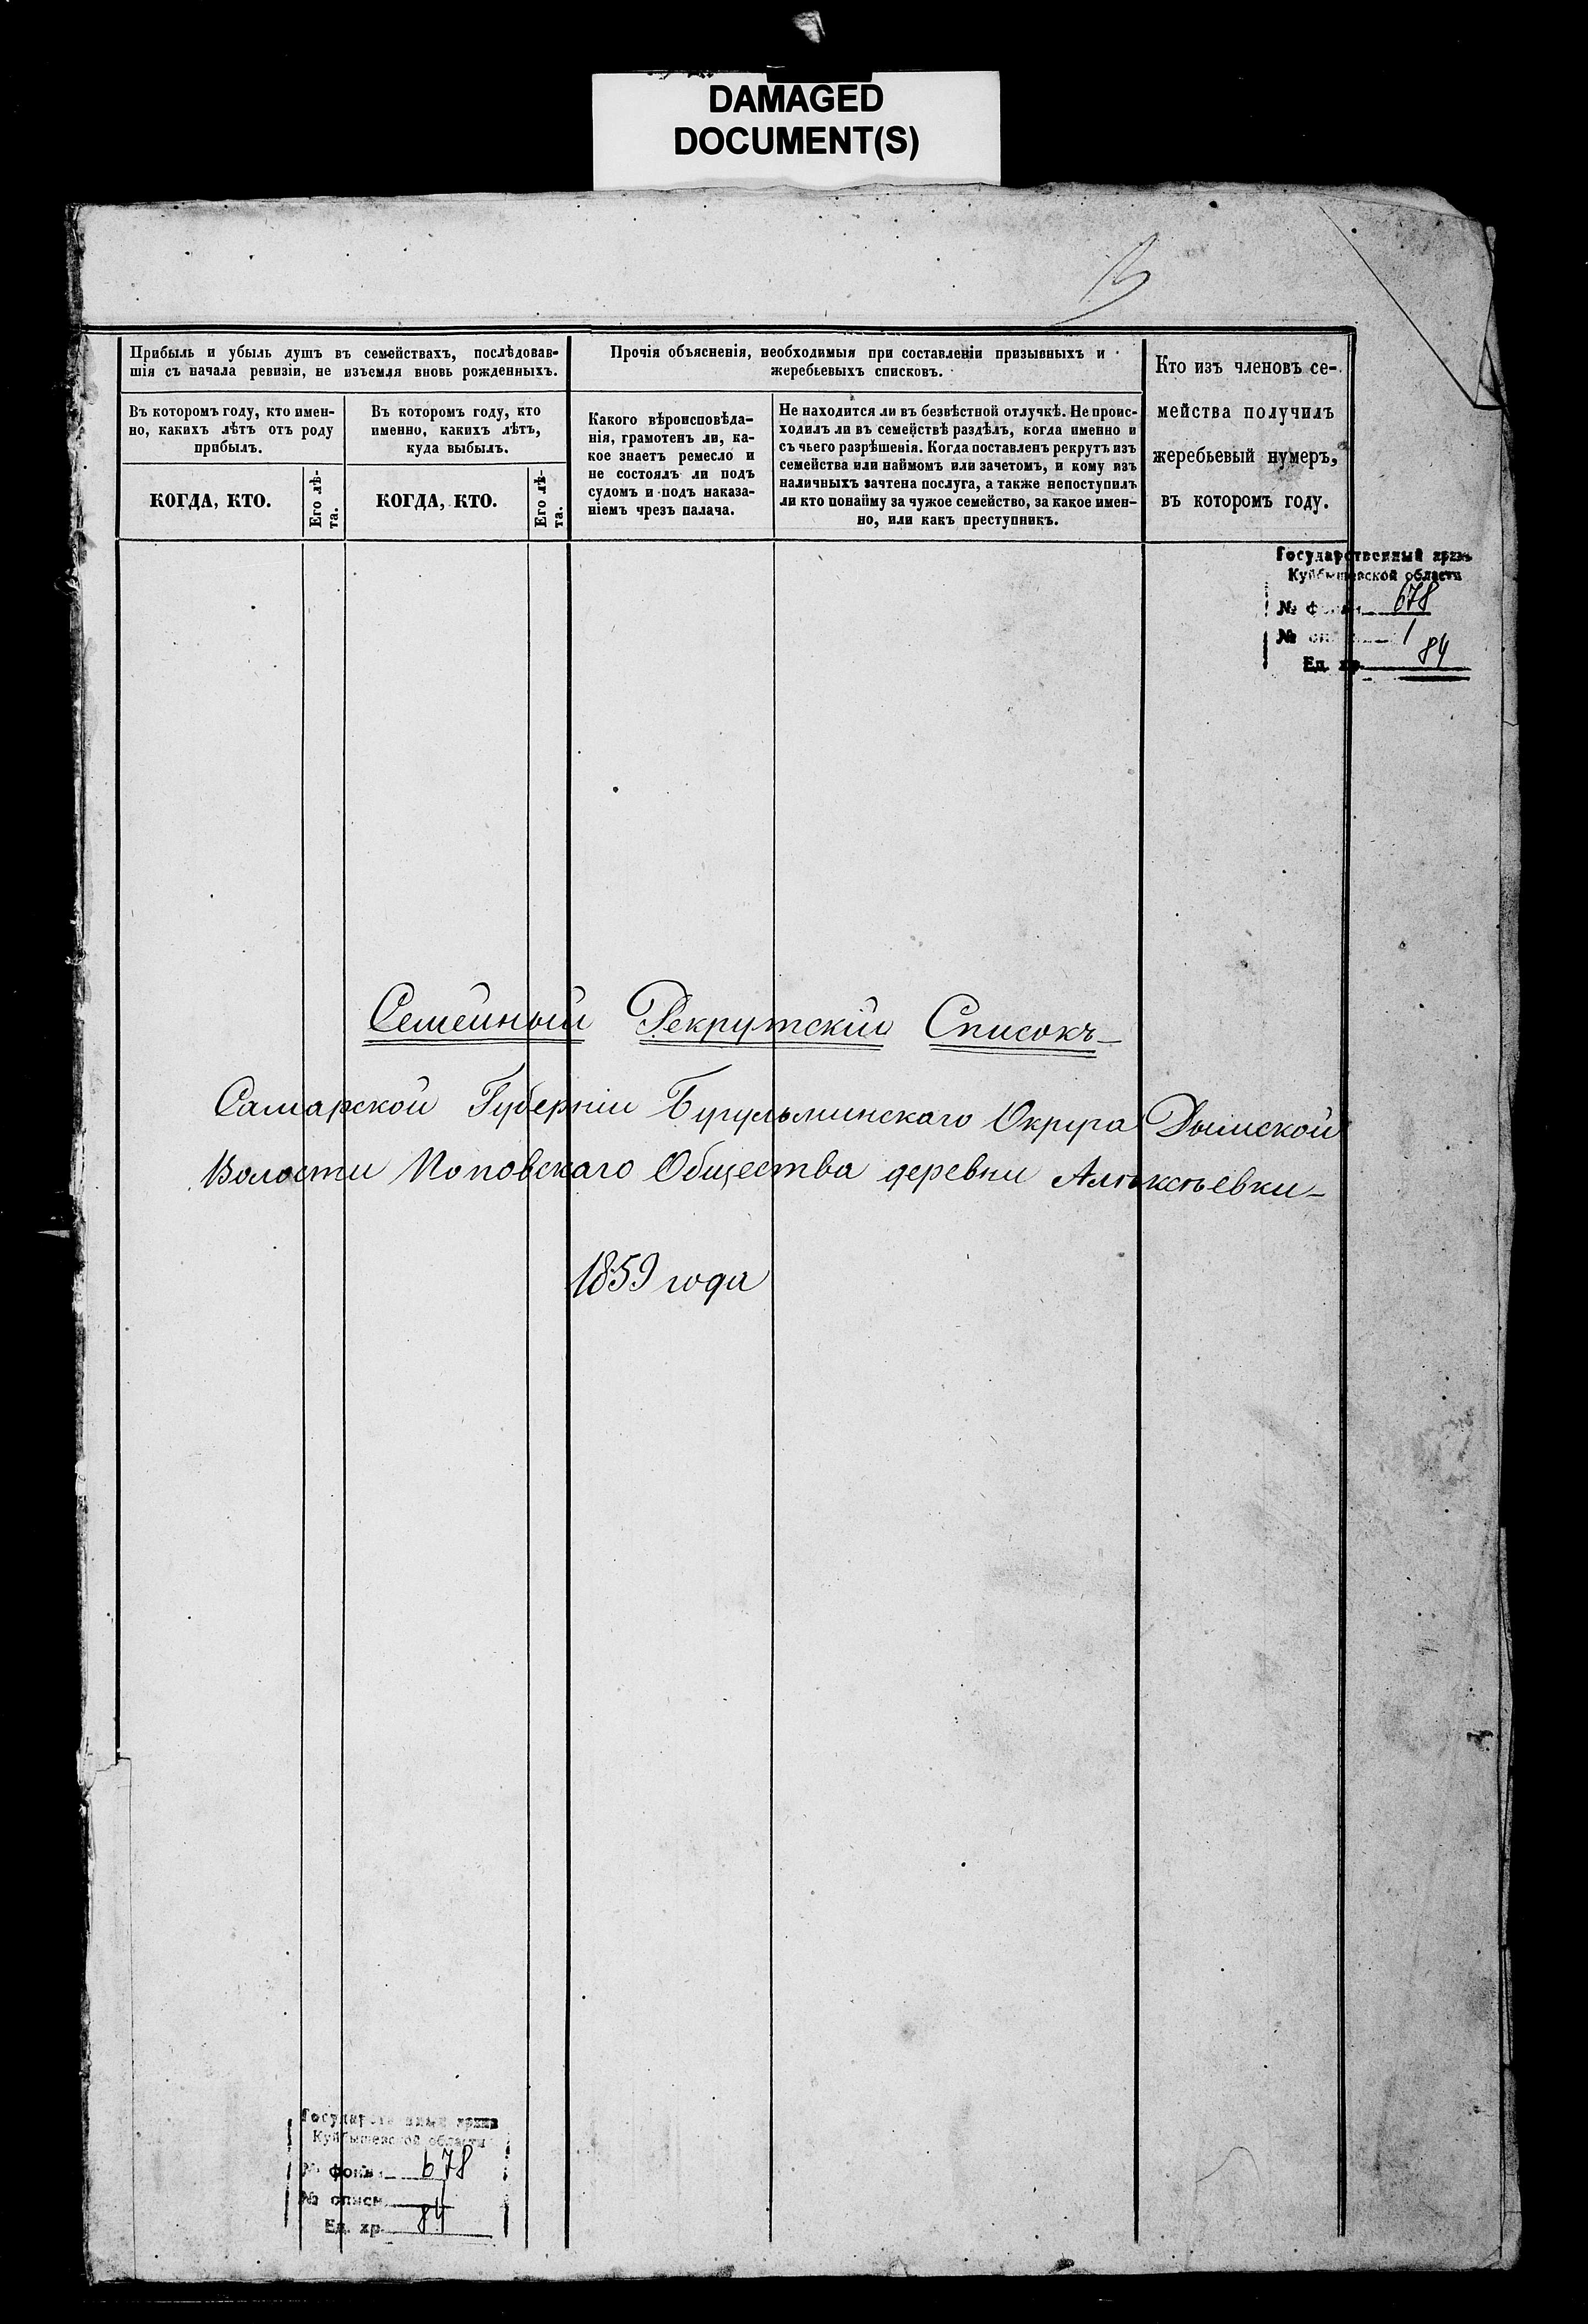 DAMAGED
DOCUMENT(S)
Прибыль и убыль душъ въ семействахъ, послѣдовав-
шія съ начала ревизіи, не изъемля вновь рожденныхъ.
Въ которомъ году, кто имен-
но, какихъ лѣтъ отъ роду
прибылъ.
КОГДА, КТО.
Его лѣ-
та.
Въ которомъ году, кто
именно, какихъ лѣтъ,
куда выбылъ.
КОГДА, КТО.
Его лѣ-
та.
Прочія объясненія, необходимыя при составленіи призывныхъ и
жеребьевыхъ списковъ.
Какого вѣроисповѣда-
нія, грамотенъ ли, ка-
кое знаетъ ремесло и
не состоялъ ли подъ
судомъ и подъ наказа-
ніемъ чрезъ палача.
Не находится ли въ безвѣстной отлучкѣ. Не проис-
ходилъ ли въ семействѣ раздѣлъ, когда именно и
съ чьего разрѣшенія. Когда поставленъ рекрутъ изъ
семейства или наймомъ или зачетомъ, и кому изъ
наличныхъ зачтена послуга, а также непоступилъ
ли кто понайму за чужое семейство, за какое имен-
но, или какъ преступникъ.
Кто изъ членовъ се-
мейства получилъ
жеребьевый нумеръ,
въ которомъ году.
Государственный архив
Куйбышевской области
№ фонда 678
№ описи 1
Ед. хр. 84
Семейный Рекрутскій Списокъ
Самарской Губерніи Бугульминскаго Округа Дымской
Волости Поповскаго Общества деревни Алѣксѣевки
1859 года
Государственный архив
Куйбышевской области
№ фонда 678
№ описи 1
Ед. хр. 84